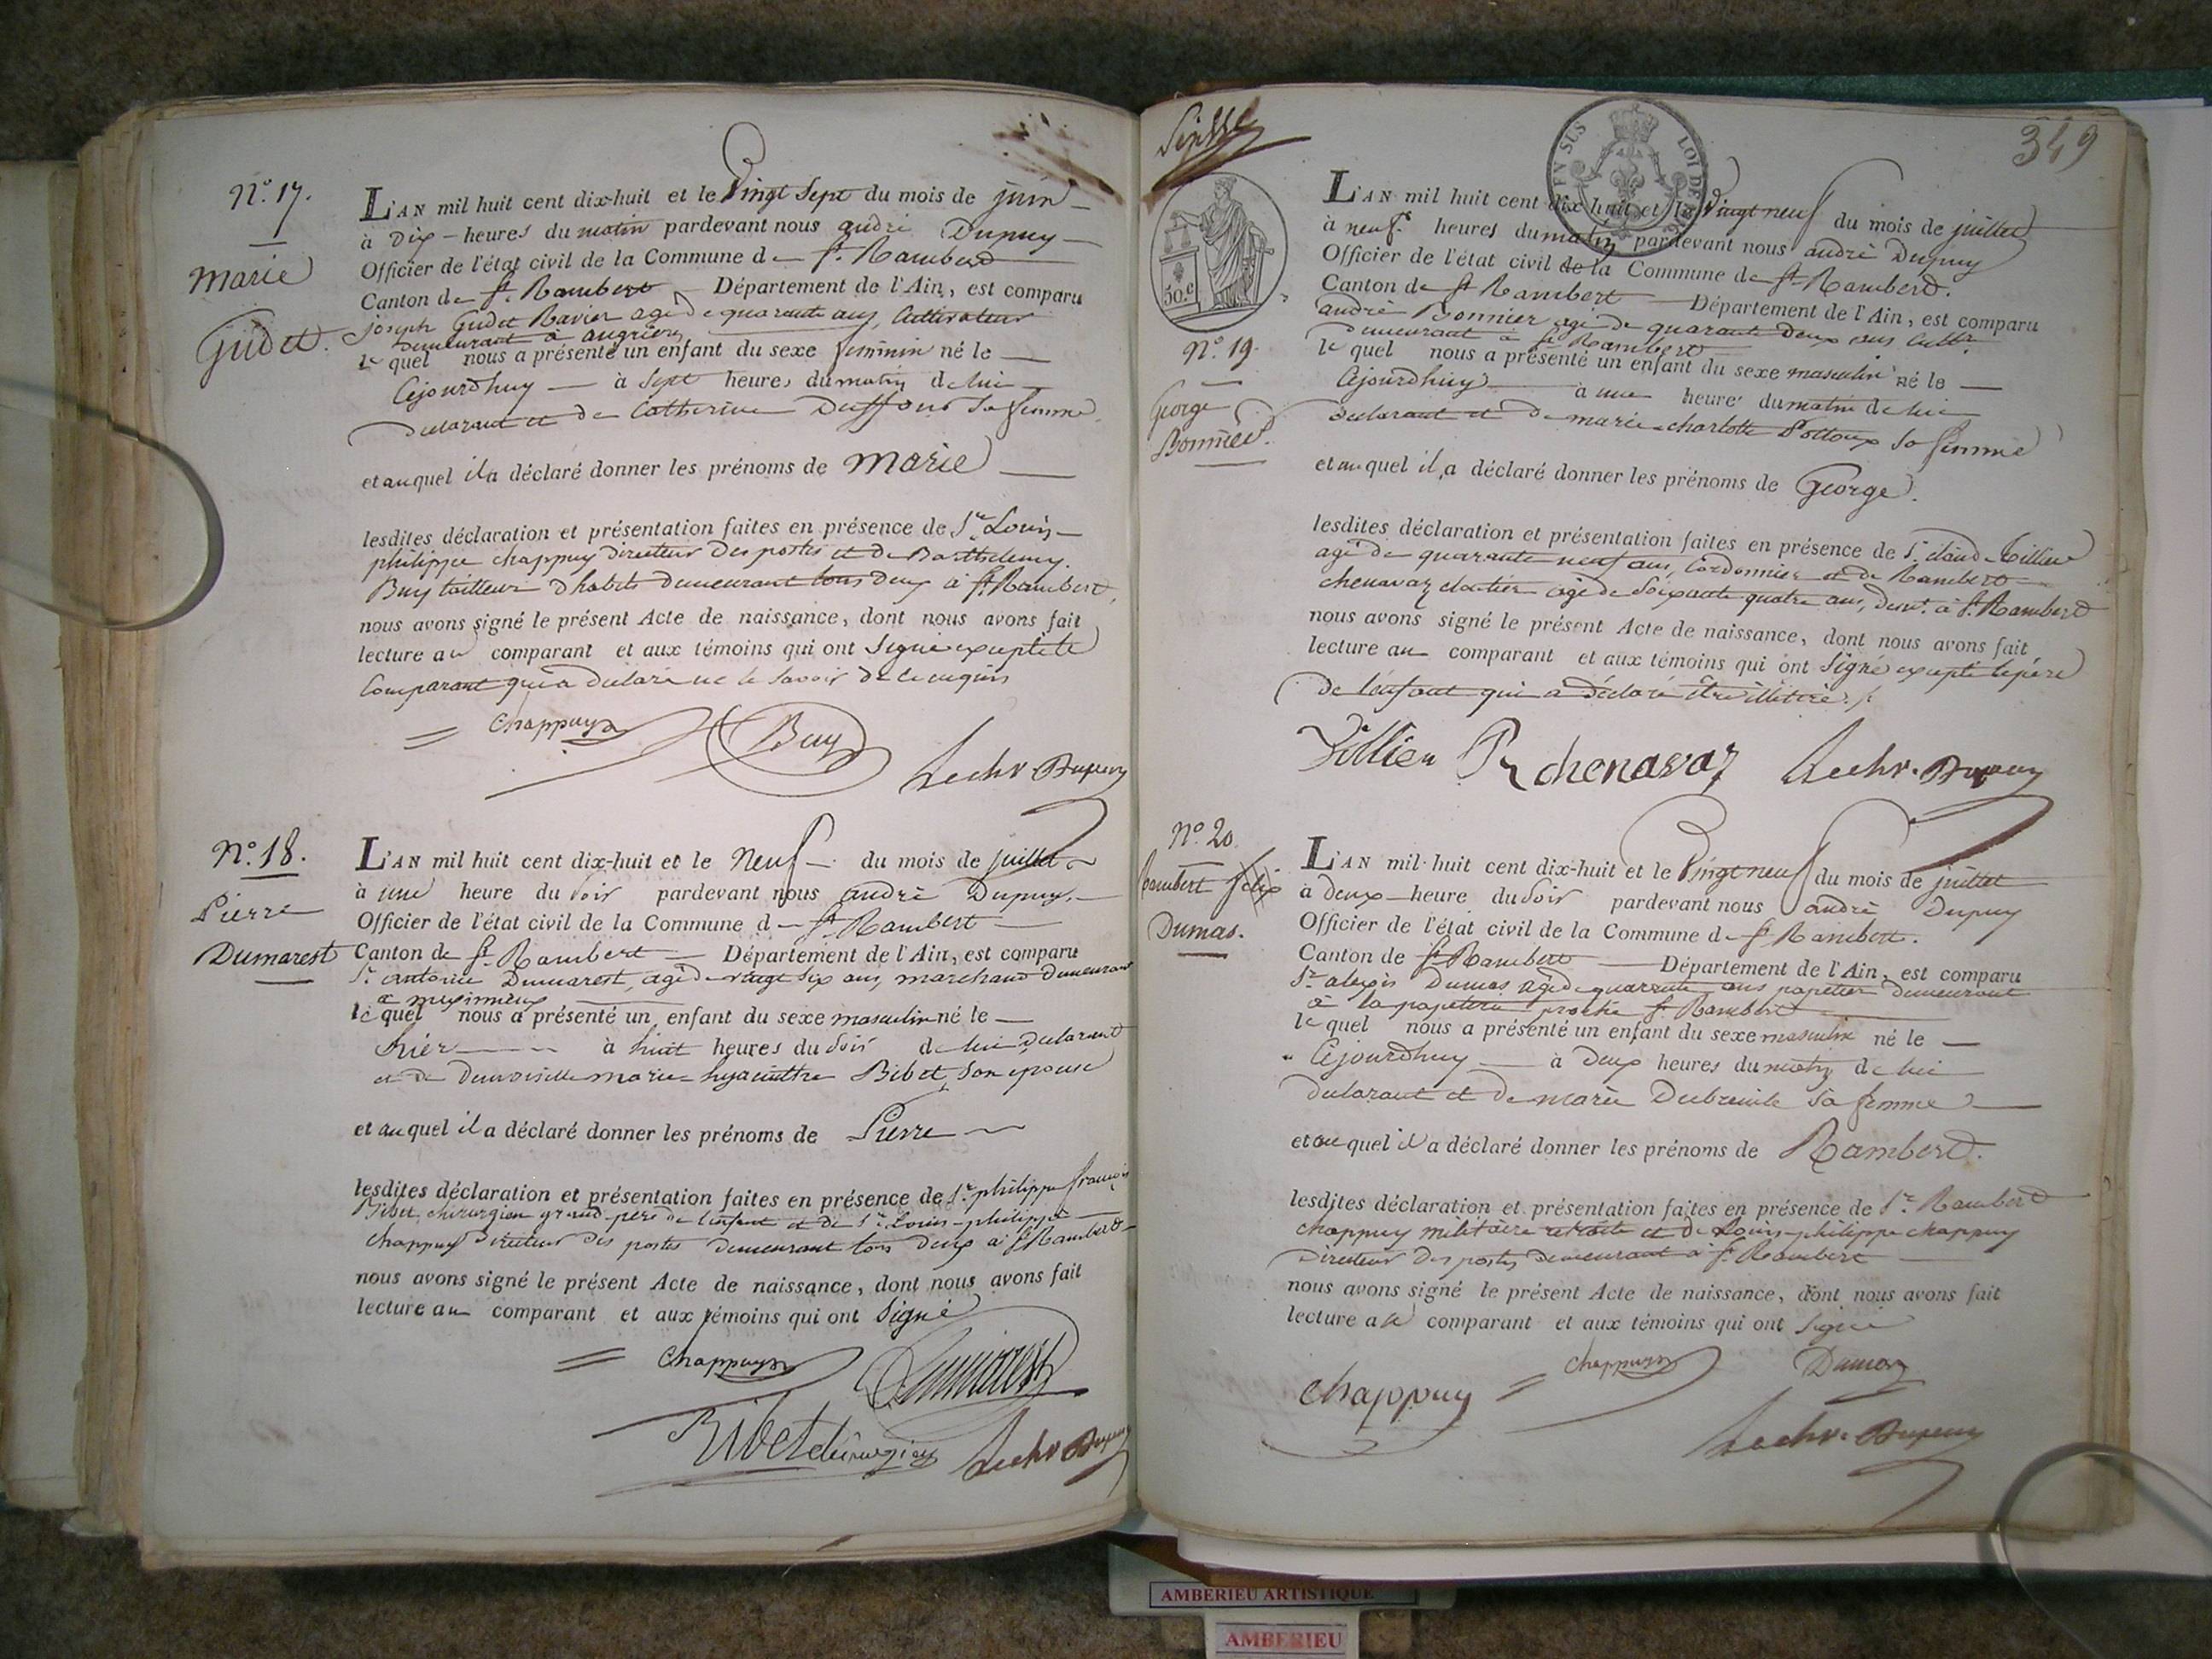 N.º 17.
Marie
Gudet.
L'AN mil huit cent dix-huit et le Vingt Sept du mois de juin
à Dix heures du matin pardevant nous andré Dupuy
Officier de l'état civil de la Commune de St. Rambert
Canton de St. Rambert Département de l'Ain, est comparu
joseph Gudet Ravier agé de quarante ans, Cultivateur
Demeurant à angrieres
le quel nous a présenté un enfant du sexe feminin né le
Cejourdhuy à Sept heures du matin de lui
declarant et de Catherine Duffour Sa femme
et auquel il a déclaré donner les prénoms de Marie
lesdites déclaration et présentation faites en présence de Sr. Louis
philippe chappuy Directeur Des postes et de Barthelemy
Buy tailleur d'habits demeurant tous deux à St. Rambert,
nous avons signé le présent Acte de naissance, dont nous avons fait
lecture au comparant et aux témoins qui ont Signé excepté le
Comparant qui a déclaré ne le Savoir de ce enquis
Chappuy Buy
Dupuy
N.º 18.
Pierre
Dumarest
L'AN mil huit cent dix-huit et le Neuf du mois de juillet
à une heure du Soir pardevant nous andré Dupuy
Officier de l'état civil de la Commune de St. Rambert
Canton de St. Rambert Département de l'Ain, est comparu
Sr. antoine Dumarest, agé de vingt Six ans, marchand demeurant
a meximieux
le quel nous a présenté un enfant du sexe masculin né le
hier à huit heures du Soir de lui Declarant
et de Demoiselle marie hyacinthe Bibet, Son epouse
et auquel il a déclaré donner les prénoms de Pierre
lesdites déclaration et présentation faites en présence de Sr. philippe françois
Bibet chirurgien grand-pere de l'enfant et de Sr. Louis-philippe
Chappuy Directeur des postes Demeurant tous deux à St. Rambert
nous avons signé le présent Acte de naissance, dont nous avons fait
lecture au comparant et aux témoins qui ont Signé
Chappuy Dumarest
Bibet chirurgien Dupuy
349
EN SUS LOI DE
50.c
N.º 19.
George
Bonnier.
L'AN mil huit cent dix-huit et le Vingt neuf du mois de juillet
à neuf heures du matin pardevant nous andré Dupuy
Officier de l'état civil de la Commune de St. Rambert.
Canton de St Rambert Département de l'Ain, est comparu
andré Bonnier agé de quarante Deux ans cultr.
Demeurant à St. Rambert
le quel nous a présenté un enfant du sexe masculin né le
Cejourdhuy à une heure du matin de lui
declarant et de marie charlotte Sa femme
et au quel il a déclaré donner les prénoms de George.
lesdites déclaration et présentation faites en présence de Sr. claud Villien
agé de quarante neuf ans, Cordonnier et de Rambert
chenavaz cloutier agé de Soixante quatre ans, demt. à St. Rambert
nous avons signé le présent Acte de naissance, dont nous avons fait
lecture au comparant et aux témoins qui ont Signé excepté le père
de l'enfant qui a déclaré être illitéré
Villien Chenavaz Dupuy
N.º 20.
Rambert felix
Dumas.
L'AN mil huit cent dix-huit et le Vingt neuf du mois de juillet
à deux heure du Soir pardevant nous andré Dupuy
Officier de l'état civil de la Commune de St Rambert.
Canton de St Rambert Département de l'Ain, est comparu
Sr. alexis Dumas agé de quarante ans papetier demeurant
à la papeterie proche St. Rambert
le quel nous a présenté un enfant du sexe masculin né le
Cejourdhuy à Deux heures du matin de lui
declarant et de marie Sa femme
et au quel il a déclaré donner les prénoms de Rambert.
lesdites déclaration et présentation faites en présence de Sr. Rambert
Chappuy militaire retraité et de Louis-philippe chappuy
Directeur Des postes demeurant à St. Rambert
nous avons signé le présent Acte de naissance, dont nous avons fait
lecture au comparant et aux témoins qui ont Signé
Chappuy Chappuy Dumas
Dupuy
AMBERIEU ARTISTIQUE
AMBERIEU